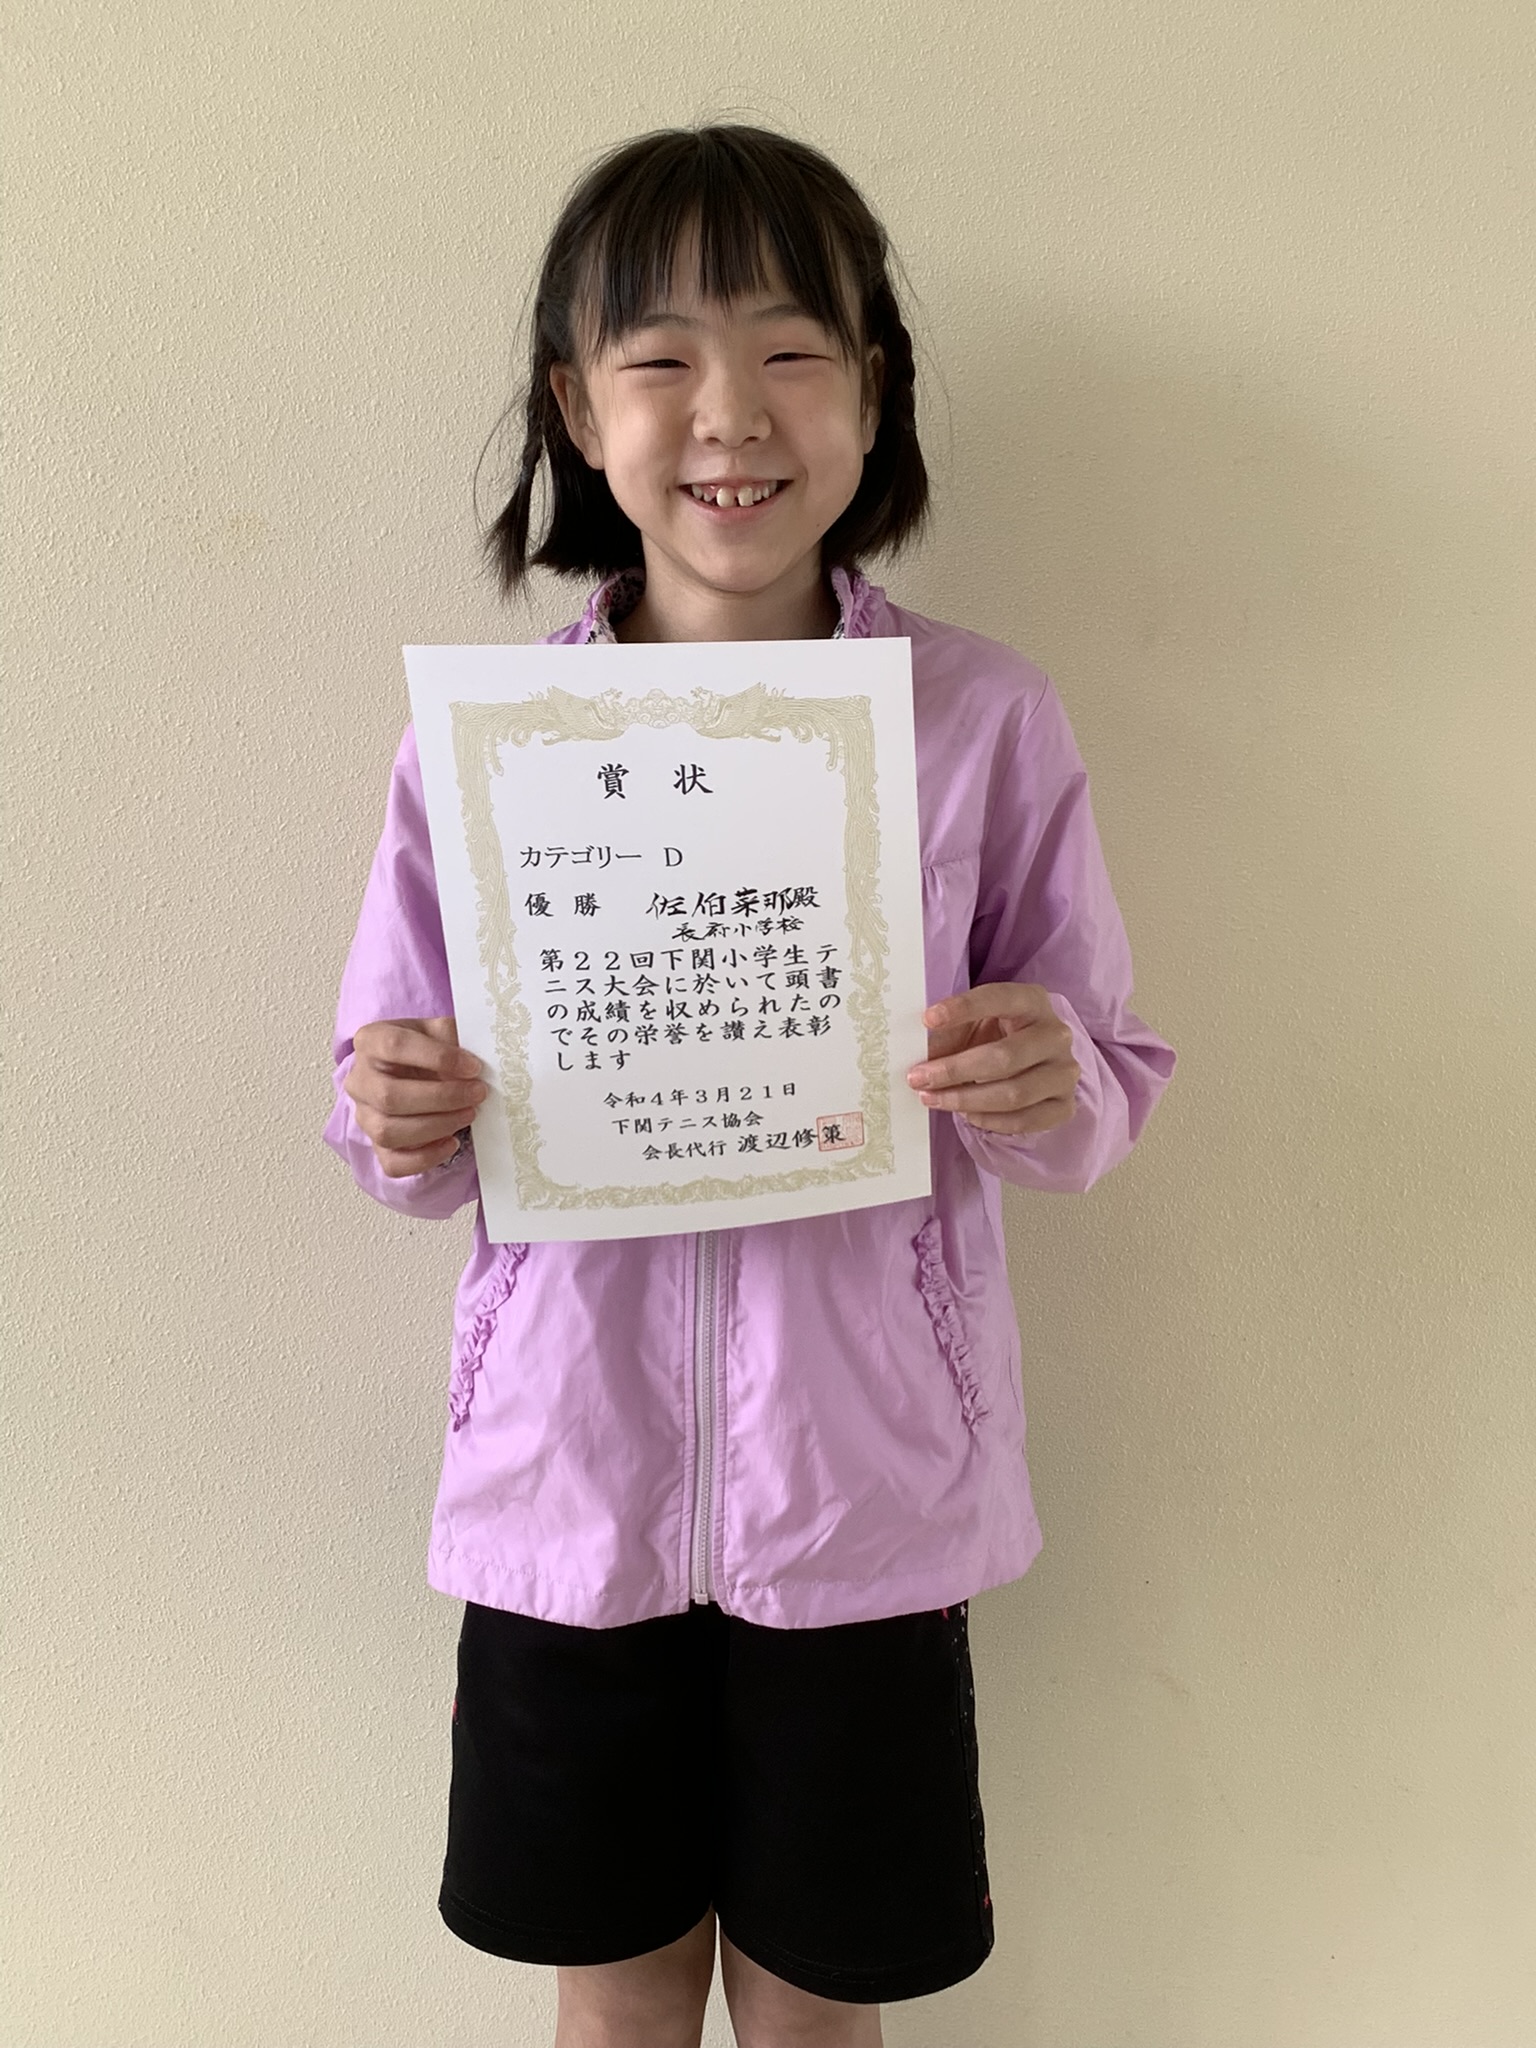 賞 状
カテゴリー D
優 勝 佐伯菜那殿
長府小学校
第22回下関小学生テ
ニス大会に於いて頭書
の成績を収められたの
でその栄誉を讃え表彰
します
令和4年3月21日
下関テニス協会
会長代行 渡辺修策